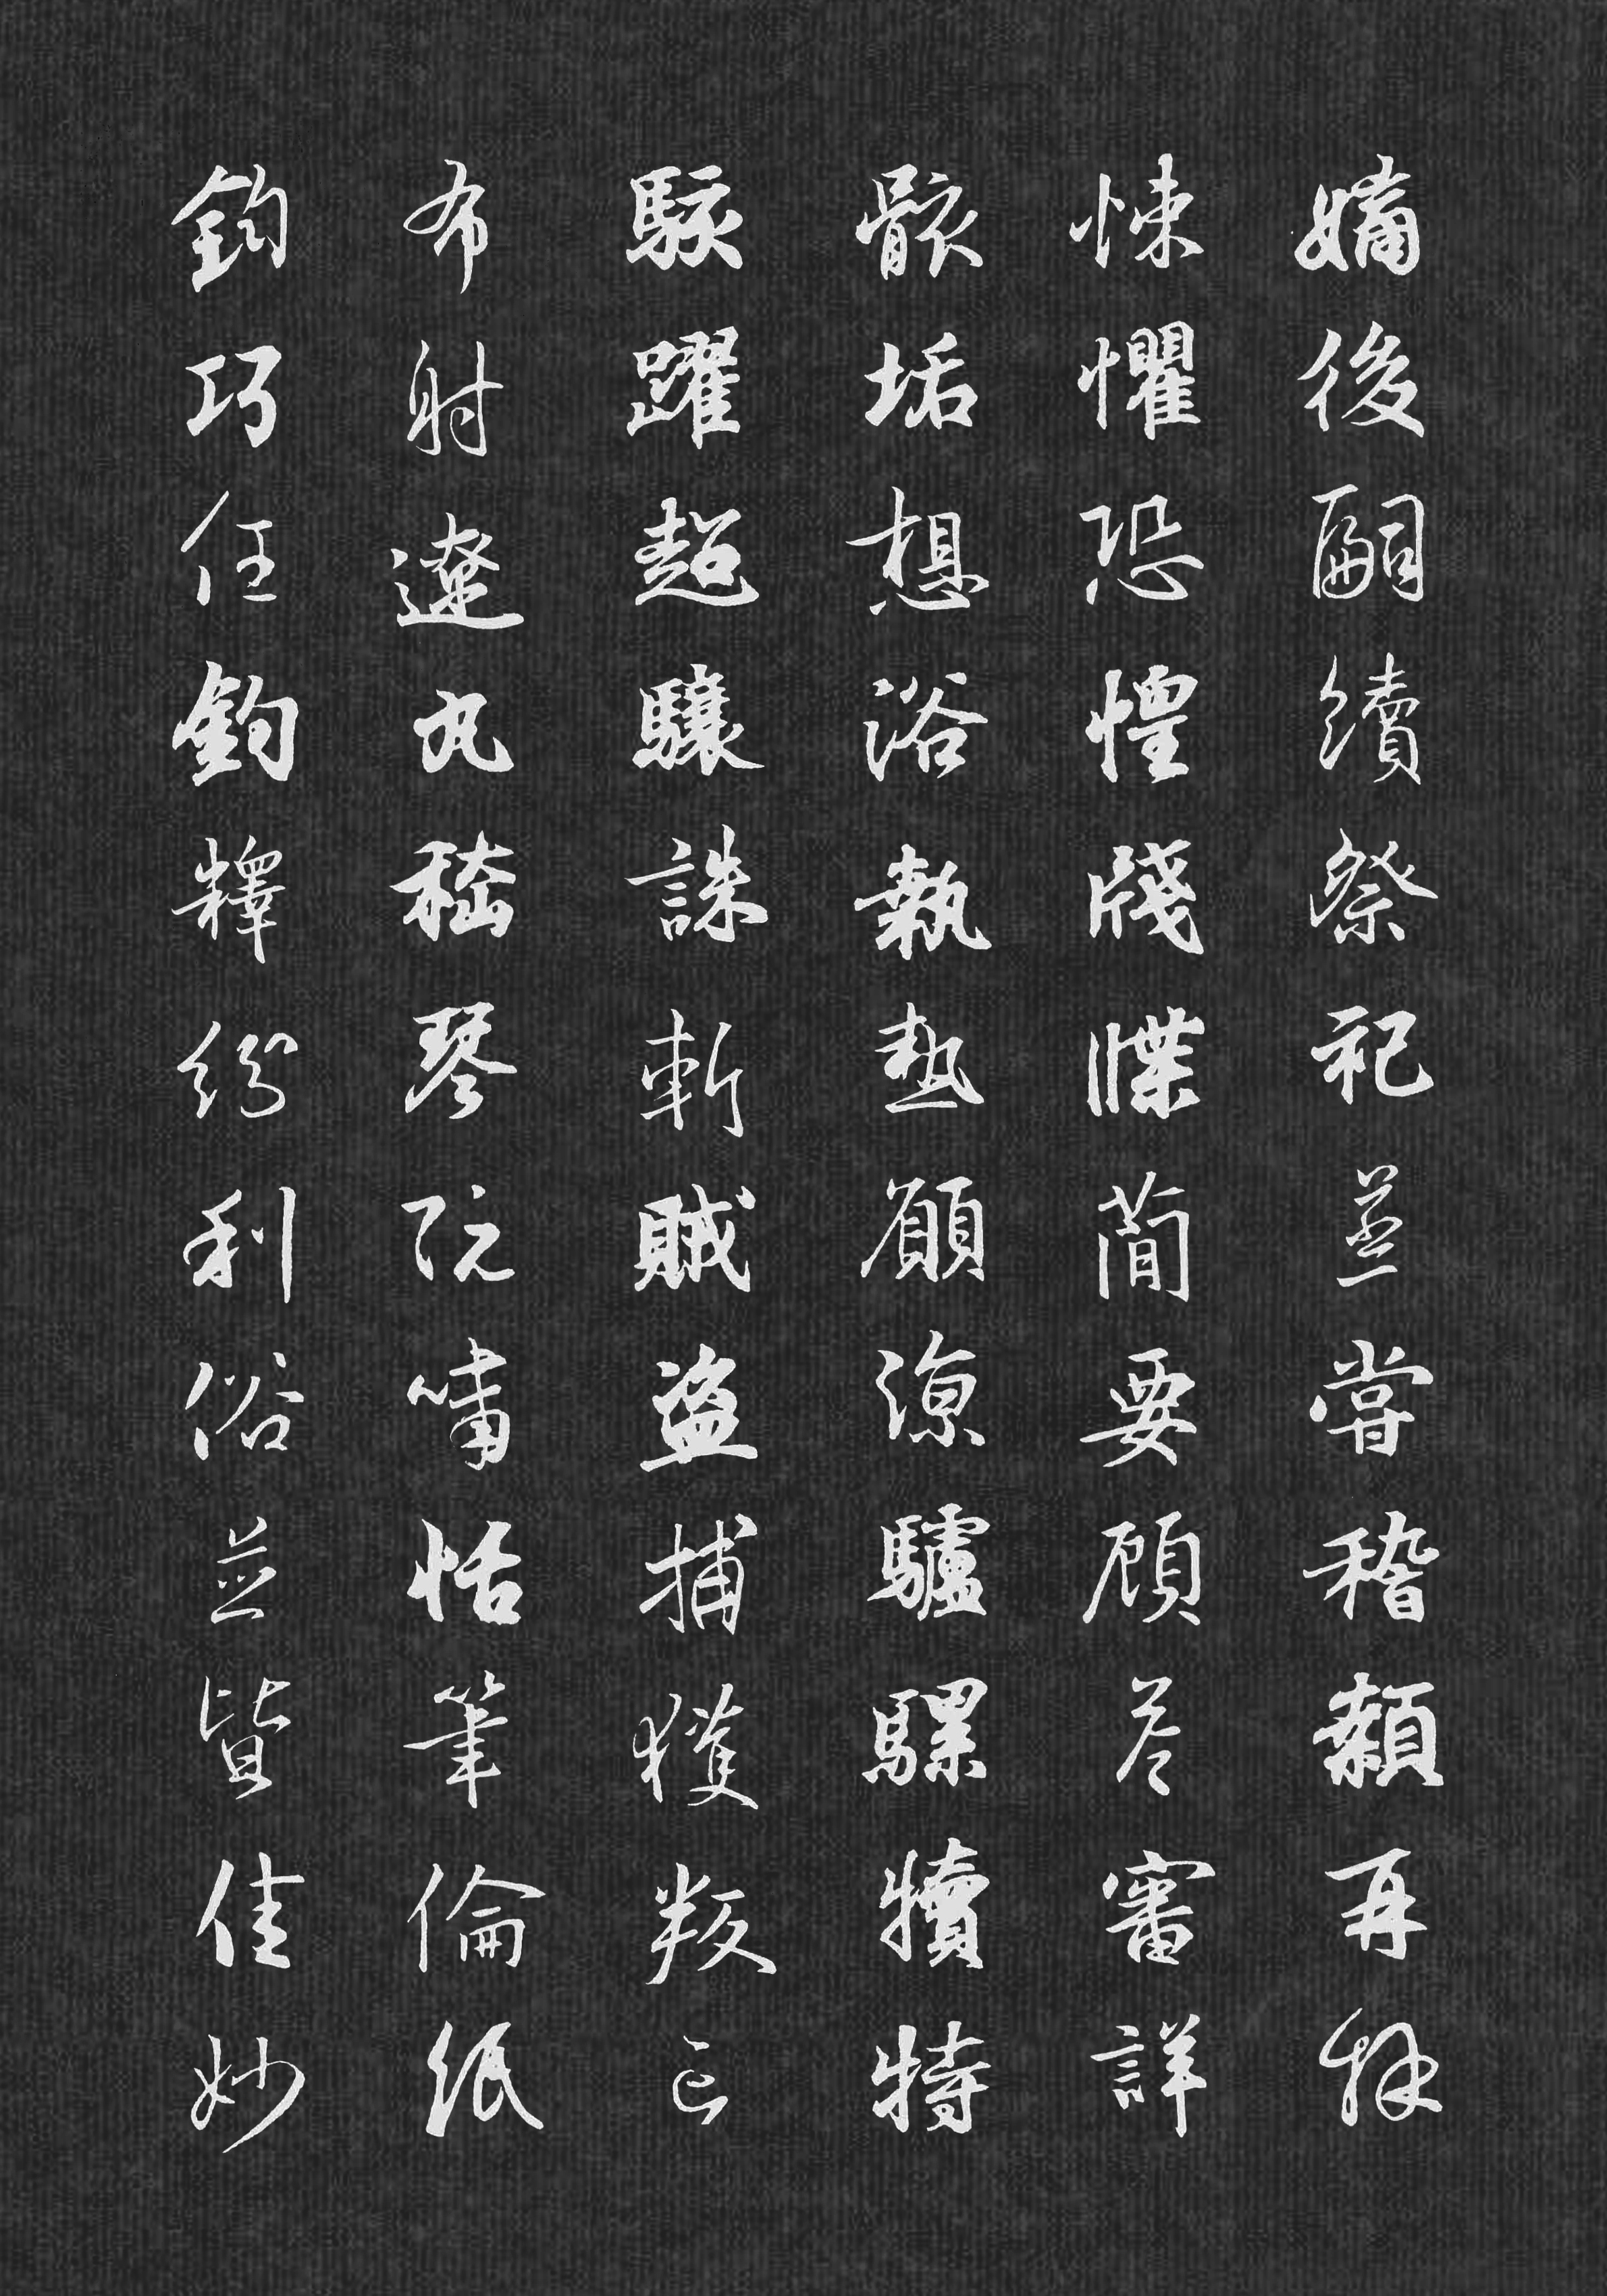 嫡後嗣續祭祀蒸嘗稽顙再拜
悚懼恐惶牋牒簡要顧答審詳
骸垢想浴執熱願涼驢騾犢特
駭躍超驤誅斬賊盜捕獲叛亡
布射遼丸嵇琴阮嘯恬筆倫紙
鈞巧任釣釋紛利俗並皆佳妙